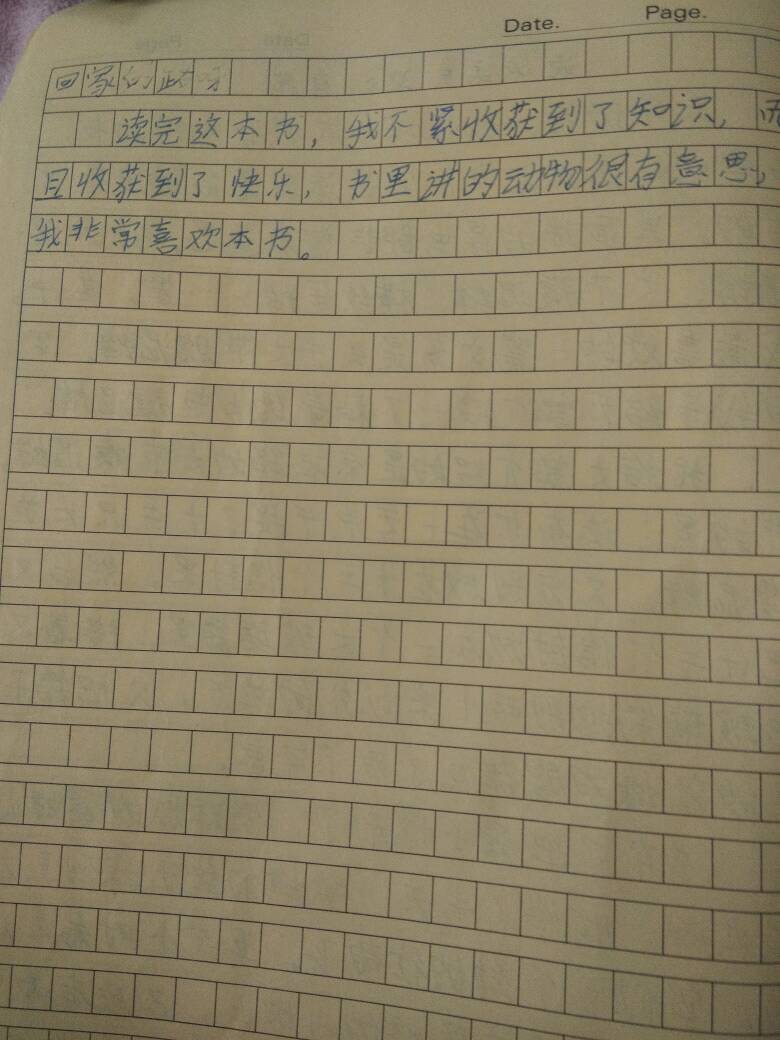 Date. Page.
回家的路
读完这本书，我不紧收获到了知识，而
且收获到了快乐，书里讲的动物很有意思，
我非常喜欢本书。